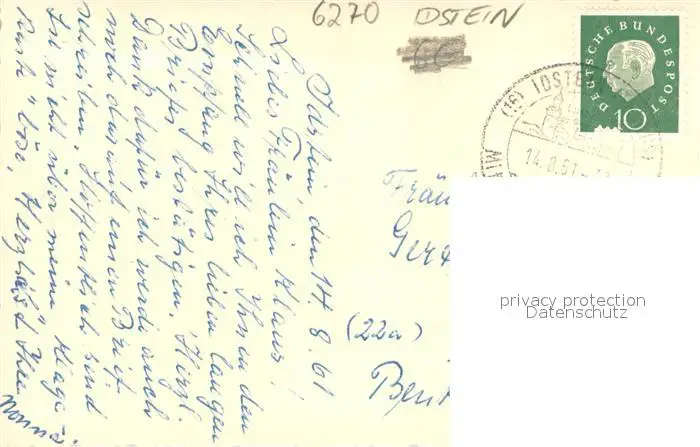 6270 IDSTEIN
DEUTSCHE BUNDESPOST
10
(16) IDSTEIN
14.8.61
Idstein, den 14.8.61
Liebes Fräulein Klaus!
Schnell will ich Ihnen den
Empfang Ihres lieben langen
Briefes bestätigen. Herzl.
Dank dafür ich werde auch
noch darauf einen Brief
schreiben. Hoffentlich sind
Sie nicht über meine "Klage-
Karte" böse. Herzlichst Ihre
Fräu
Ger
(22a)
Ben
privacy protection
Datenschutz